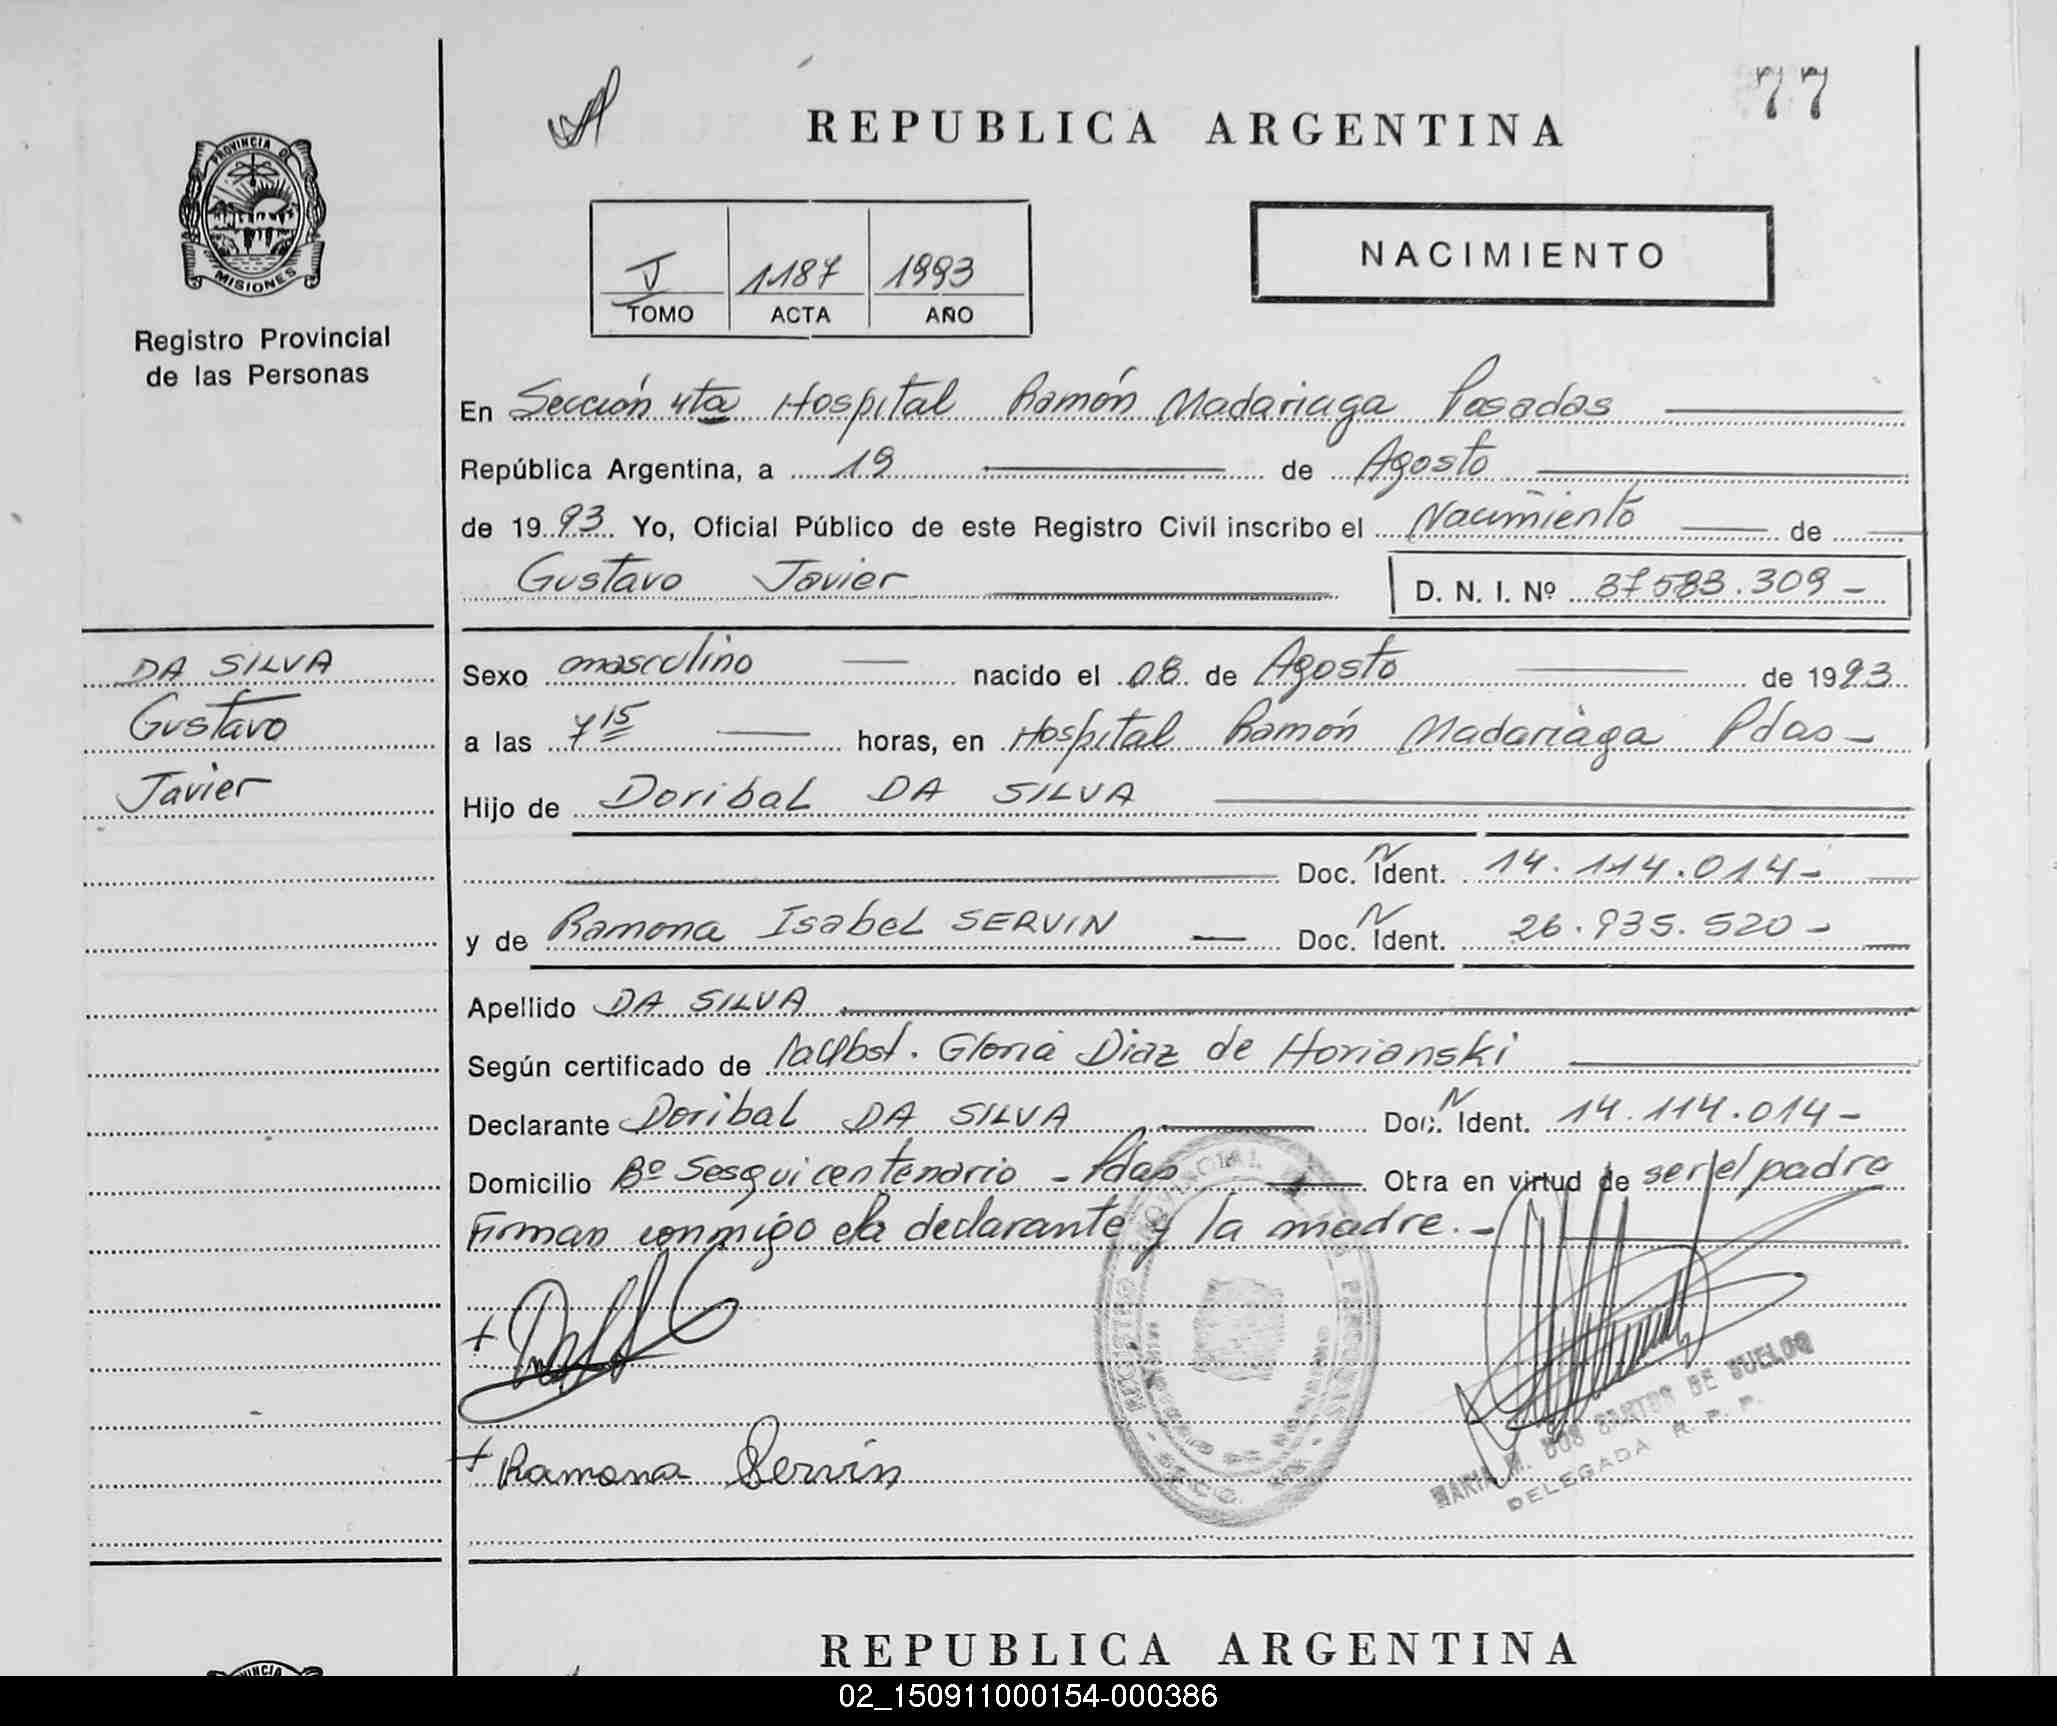 77
REPUBLICA ARGENTINA
PROVINCIA DE
MISIONES
Registro Provincial
de las Personas
NACIMIENTO
J 1187 1993
TOMO ACTA AÑO
En Sección 4ta Hospital Ramón Madariaga Posadas
República Argentina, a 19 de Agosto
de 1993 Yo, Oficial Público de este Registro Civil inscribo el Nacimiento de
Gustavo Javier D. N. I. Nº 37583.309-
DA SILVA
Gustavo
Javier
Sexo masculino nacido el 08 de Agosto de 1993
a las 7 15 horas, en Hospital Ramón Madariaga Pdas-
Hijo de Doribal DA SILVA
Doc. N Ident. 14.114.014-
y de Ramona Isabel SERVIN Doc. N Ident. 26.935.520-
Apellido DA SILVA
Según certificado de Gloria Diaz de Horianski
Declarante Doribal DA SILVA Doc. N Ident. 14.114.014-
Domicilio Bº Sesquicentenario - Pdas Obra en virtud de ser el padre
Firman conmigo el declarante y la madre.-
+
+ Ramona Servin
REGISTRO PROVINCIAL DE LAS PERSONAS
DELEGADA R. P. P.
REPUBLICA ARGENTINA
02_150911000154-000386